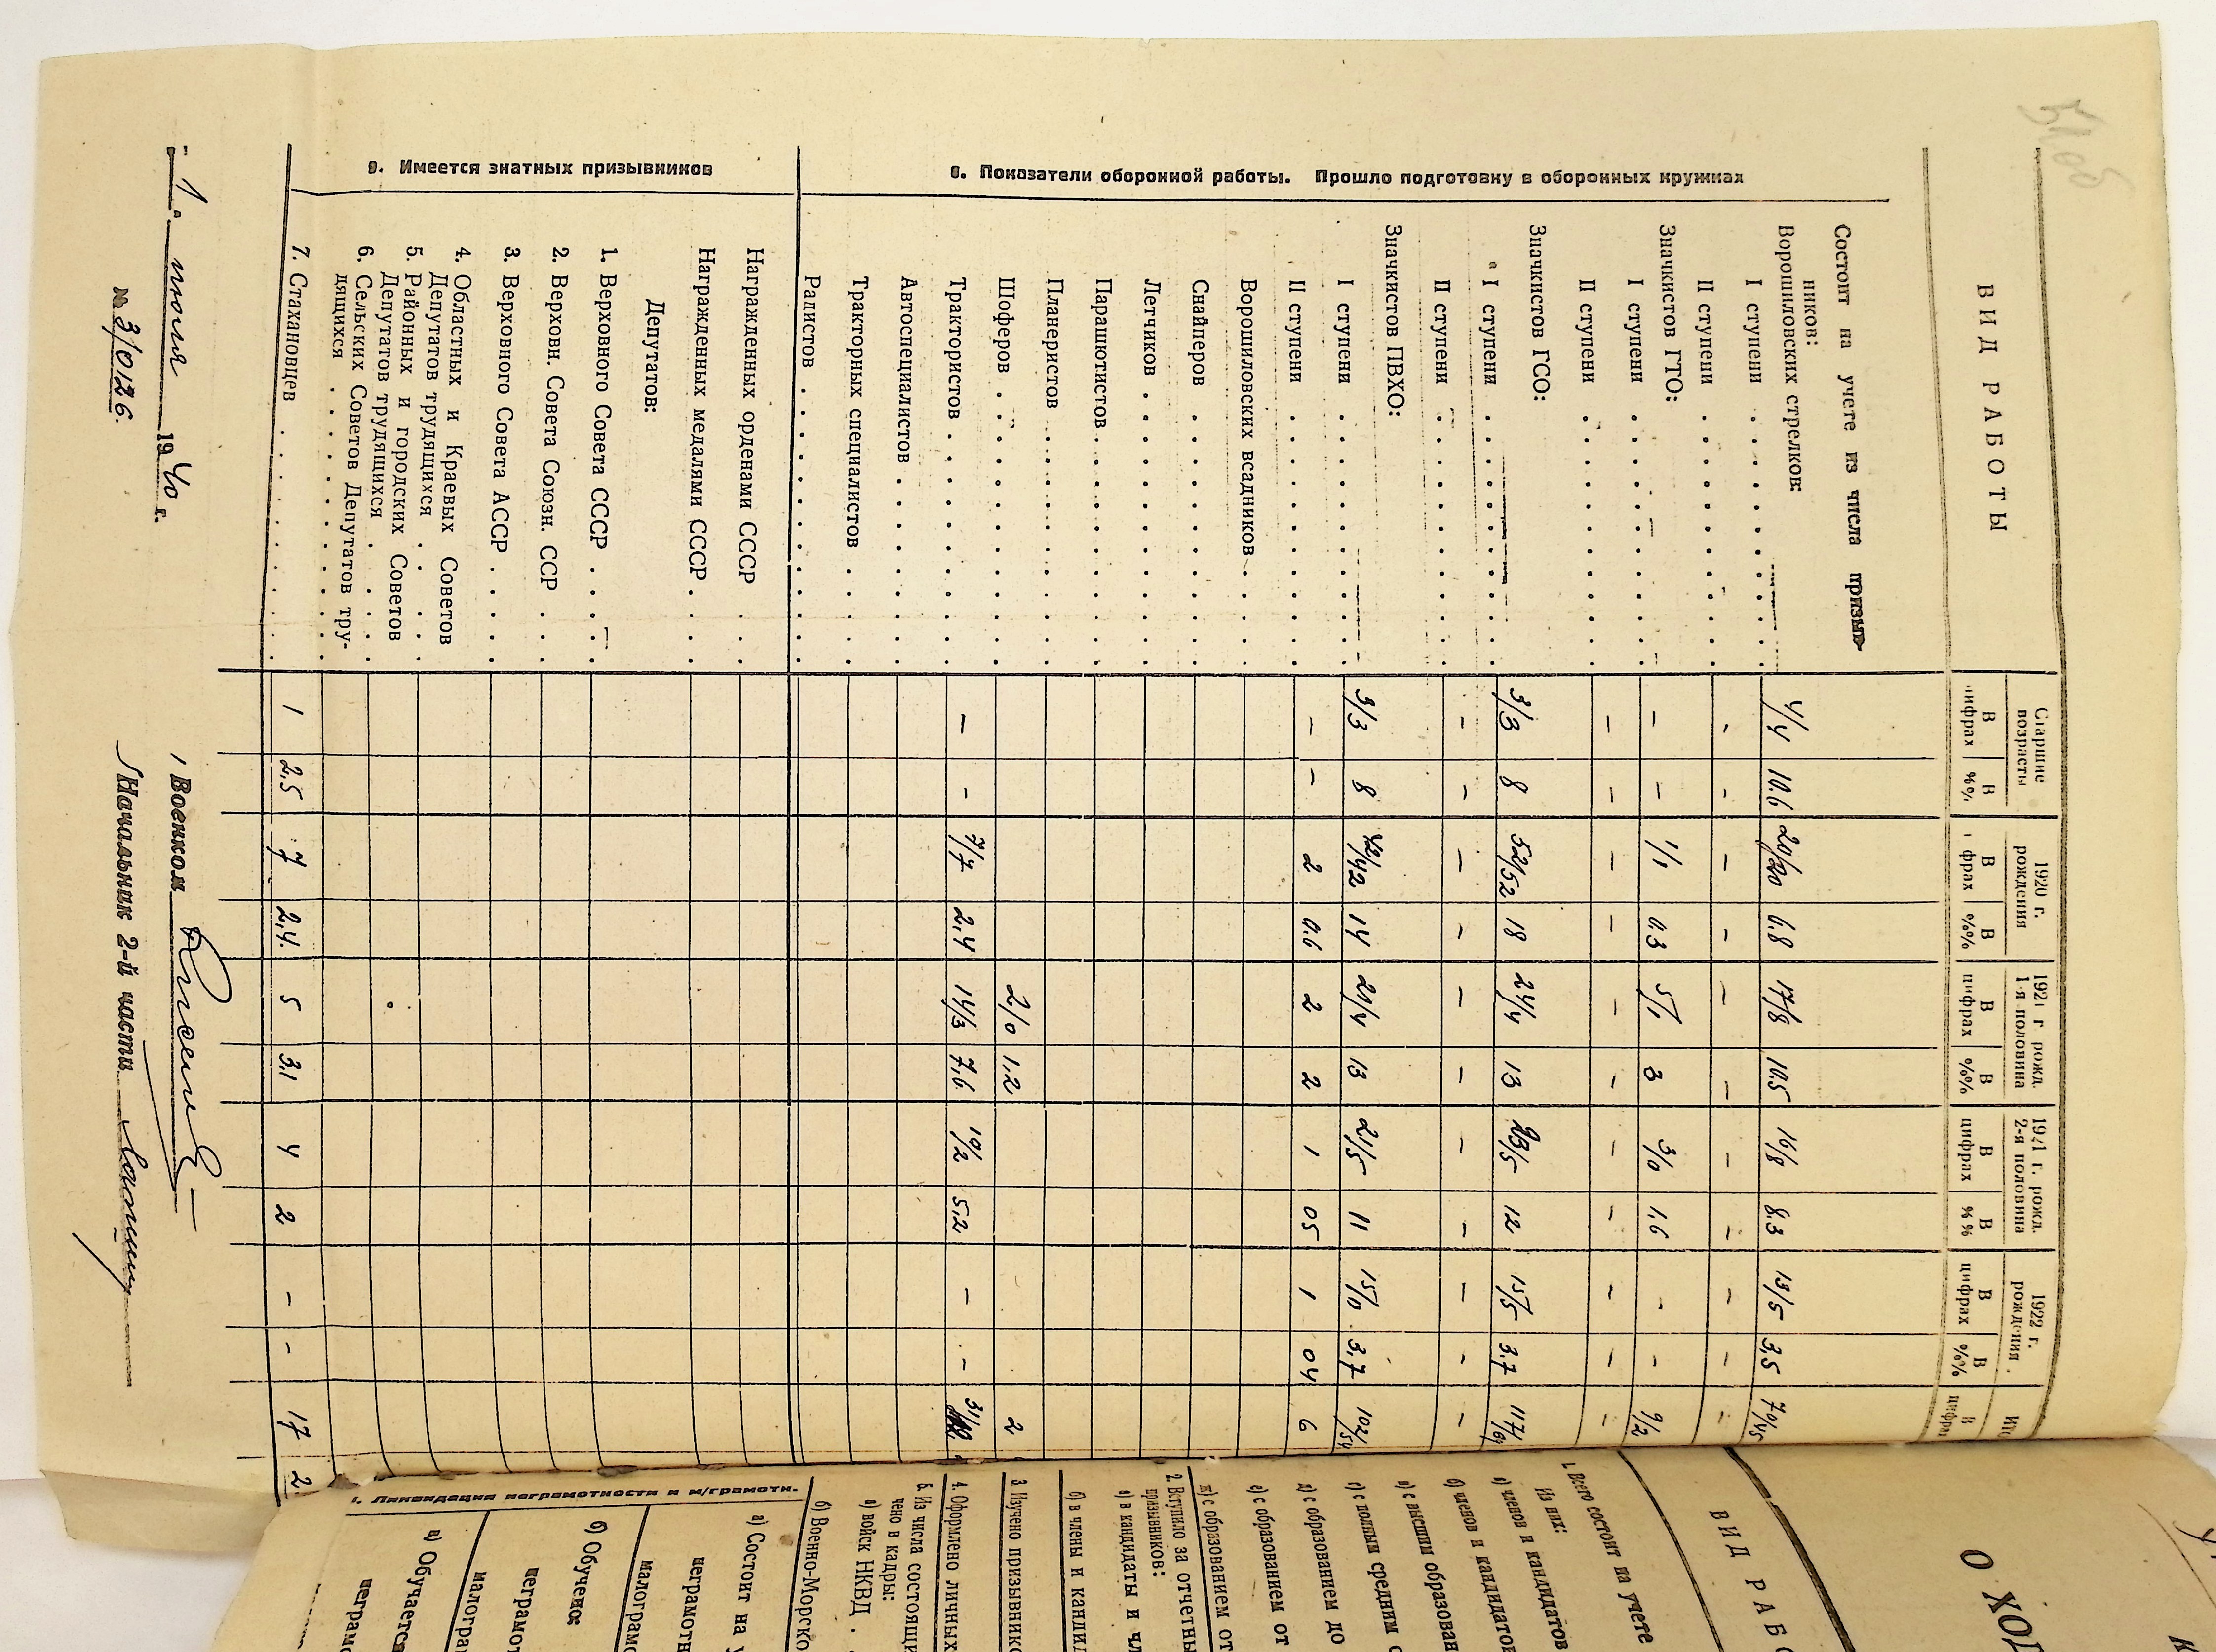 51об
ВИД РАБОТЫ
Старшие возрасты | 1920 г. рождения | 1921 г рожд. 1-я половина | 1921 г. рожд. 2-я половина | 1922 г. рождения
В цифрах | В %% | В цифрах | В %% | В цифрах | В %% | В цифрах | В %% | В цифрах | В %% | В цифрах
8. Показатели оборонной работы. Прошло подготовку в оборонных кружках
Состоит на учете из числа призыв-
ников:
Ворошиловских стрелков:
I ступени 4/4 10.6 20/20 6.8 17/8 10.5 16/8 8.3 13/5 3,5 70/45
II ступени – – – – – – – – – – –
Значкистов ГТО:
I ступени – – 1/1 0.3 5/1 3 3/0 1.6 - - 9/2
II ступени – – – – – – – – – – –
Значкистов ГСО:
I ступени 3/3 8 52/52 18 21/4 13 23/5 12 15/5 3.7 117/69
II ступени – – – – – – – – – – –
Значкистов ПВХО:
I ступени 3/3 8 42/42 14 21/4 13 21/5 11 15/0 3.7 102/54
II ступени – – 2 0.6 2 2 1 05 1 04 6
Ворошиловских всадников
Снайперов
Летчиков
Парашютистов
Планеристов
Шоферов 2/0 1,2 2
Трактористов – – 7/7 2,4 14/3 7,6 10/2 5,2 – –
Автоспециалистов
Тракторных специалистов
Ралистов
9. Имеется знатных призывников
Награжденных орденами СССР
Награжденных медалями СССР
Депутатов:
1. Верховного Совета СССР
2. Верховн. Совета Союзн. ССР
3. Верховного Совета АССР
4. Областных и Краевых Советов
Депутатов трудящихся
5. Районных и городских Советов
Депутатов трудящихся
6. Сельских Советов Депутатов тру-
дящихся
7. Стахановцев 1 2,5 7 2,4. 5 3,1 4 2 – – 17 2
"1" июля 1940 г.
№ 3/0126.
Военком
Начальник 2-й части
О ХОД
ВИД РАБО
1. Всего состоит на учете
Из них:
а) членов и кандидатов
б) членов и кандидатов
в) с высшим образован
г) с полным средним о
д) с образованием до
е) с образованием от
ж) с образованием от
2. Вступило за отчетны
призывников:
а) в кандидаты и чл
б) в члены и кандид
3 Изучено призывнико
4. Оформлено личных
5. Из числа состоящи
чено в кадры:
а) войск НКВД
б) Военно-Морско
1. Ликвидация неграмотности и м/грамотн.
а) Состоит на у
неграмотн
малограмо
б) Обучено:
неграмот
малограм
в) Обучается
неграмо